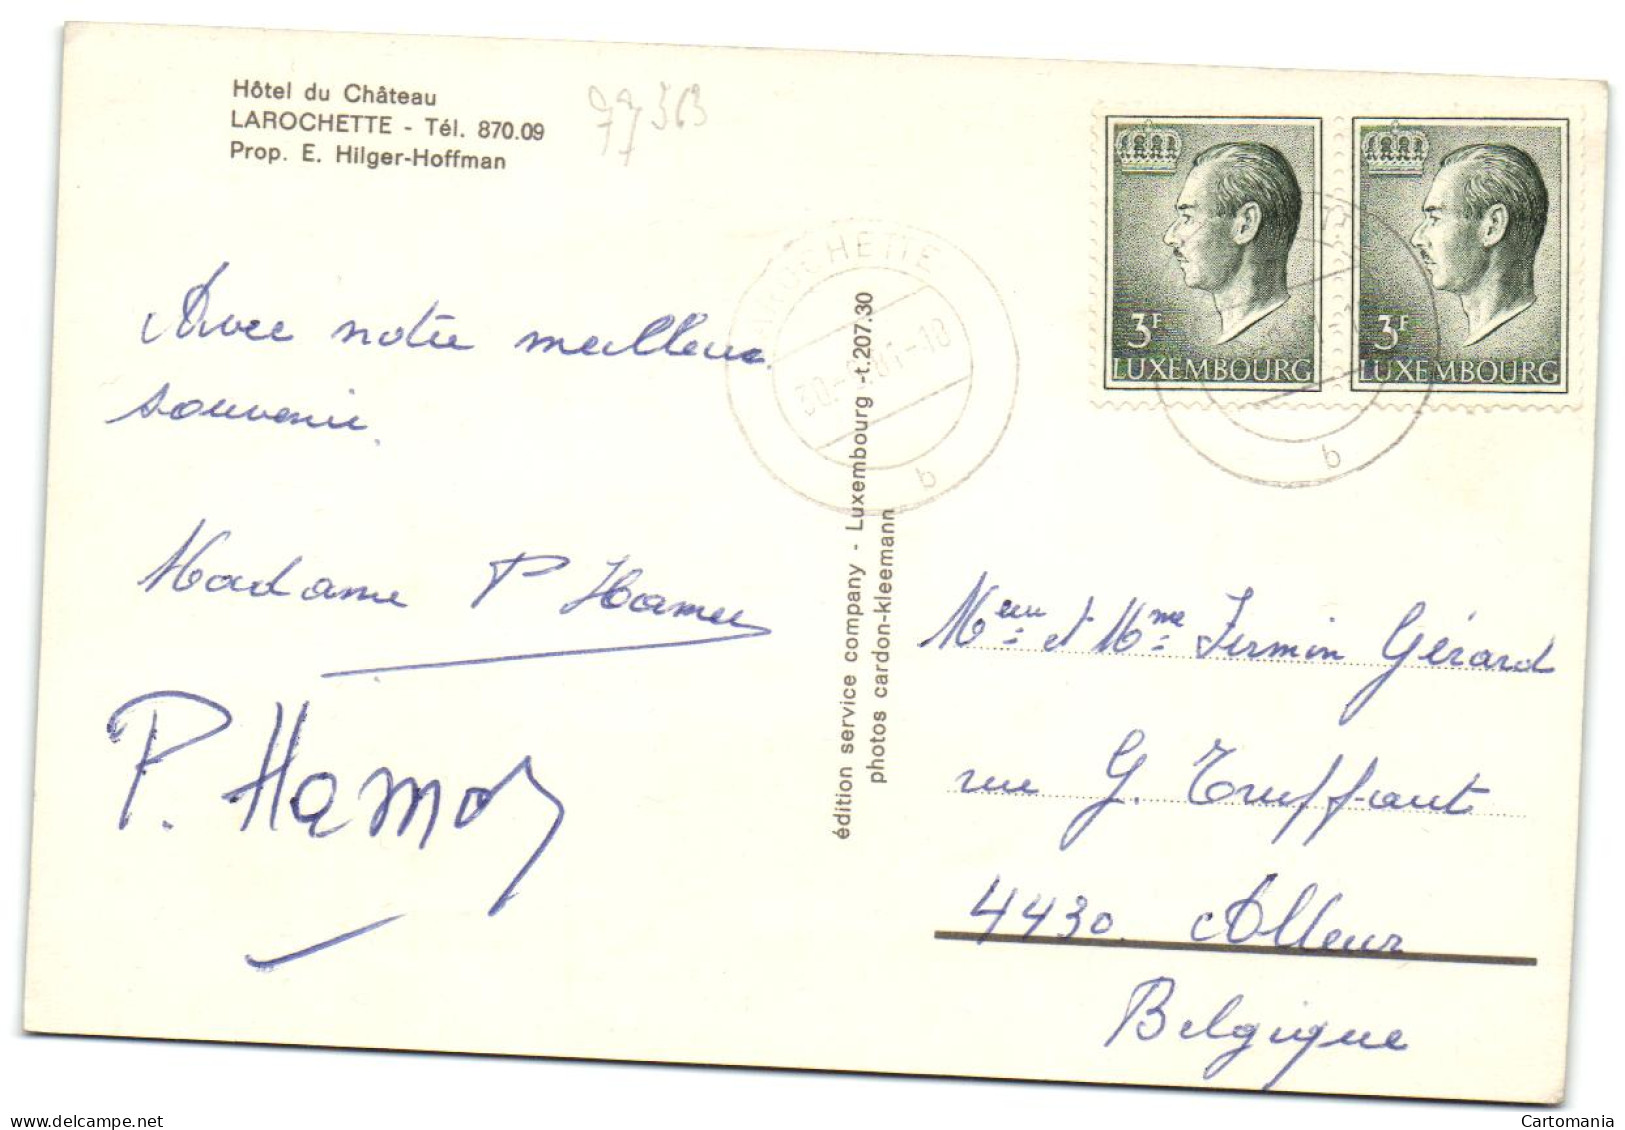 Hôtel du Château
LAROCHETTE - Tél. 870.09
Prop. E. Hilger-Hoffman
77 363
Avec notre meilleur
souvenir.
Madame P Hamer
P. Hamer
LAROCHETTE
b
édition service company - Luxembourg -t.207.30
photos cardon-kleemann
3F
LUXEMBOURG
3F
LUXEMBOURG
b
Meur et Mme Firmin Gérard
rue G. Truffaut
4430 Alleur
Belgique
delcampe.net
Cartomania